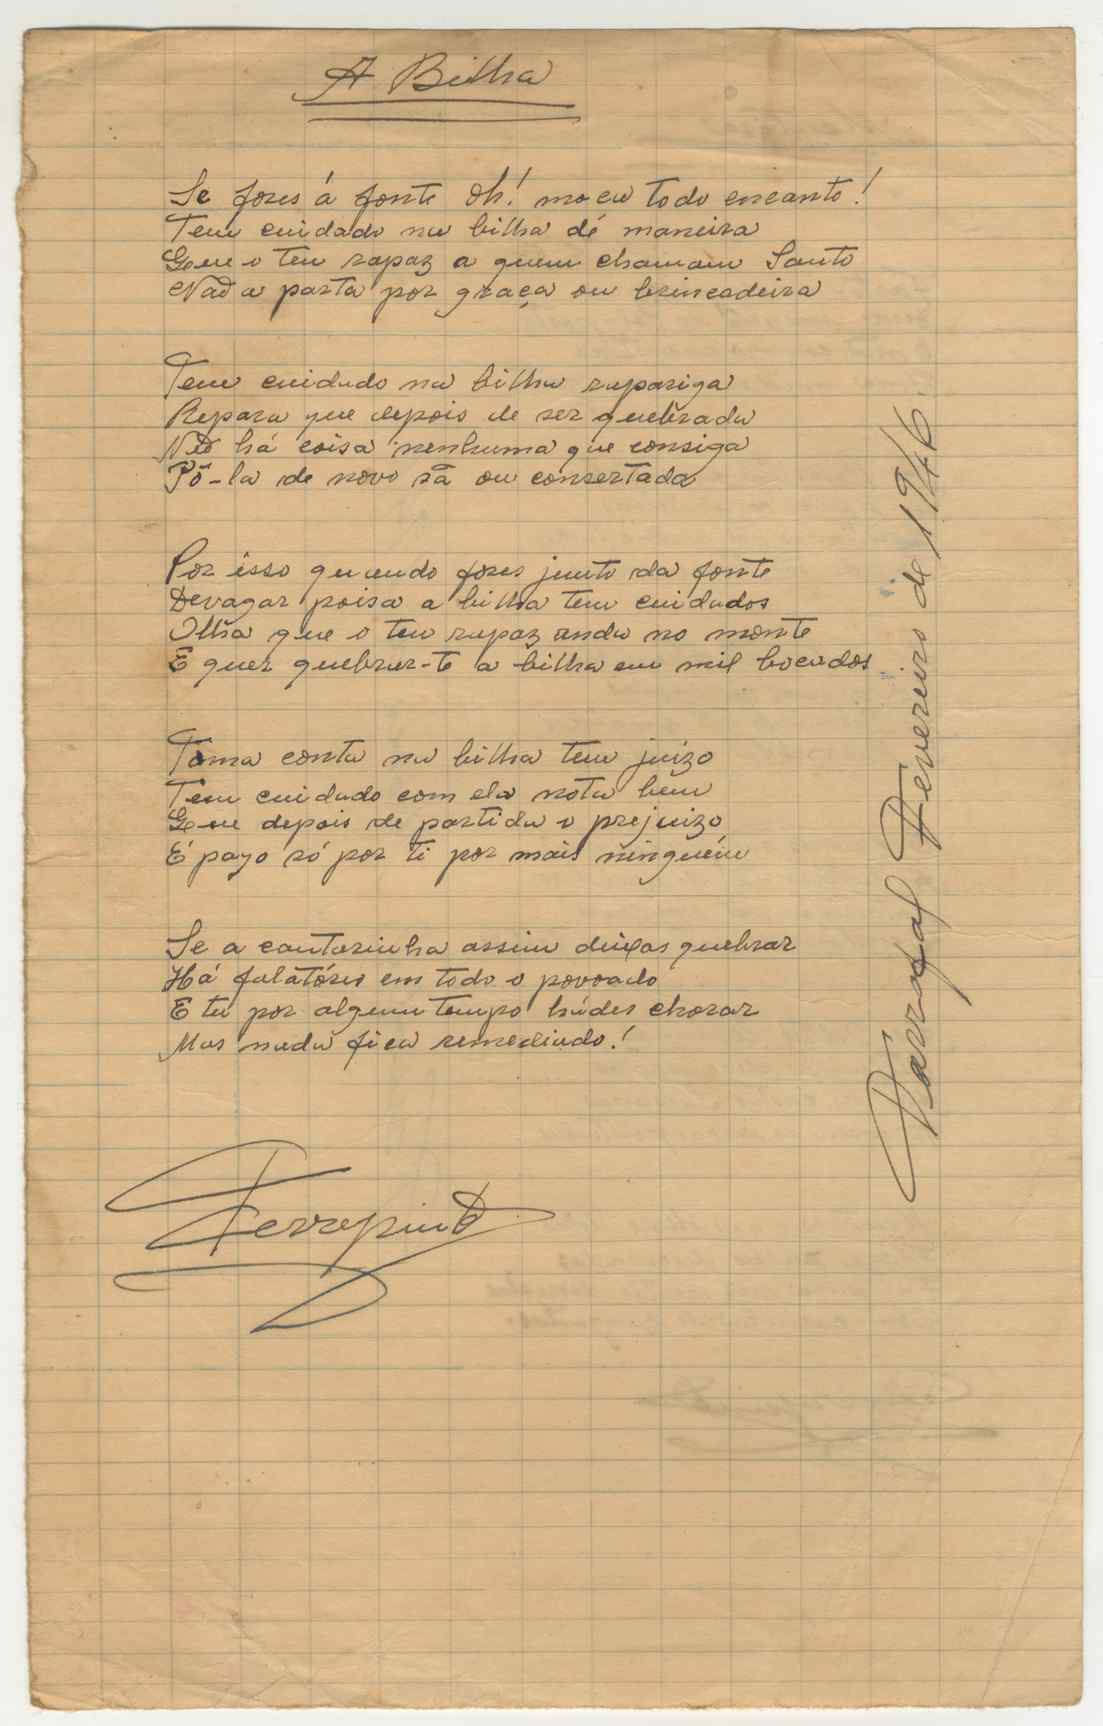 A Bilha
Se fores á fonte oh! moça todo encanto!
Tem cuidado na bilha dé maneira
Que o teu rapaz a quem chamam Santo
Não a parta por graça ou brincadeira
Tem cuidado na bilha rapariga
Repara que depois de ser quebrada
Não há coisa nenhuma que consiga
Pô-la de novo sã ou consertada
Por isso quando fores junto da fonte
Devagar poisa a bilha tem cuidados
Olha que o teu rapaz anda no monte
E quer quebrar-te a bilha em mil bocados
Toma conta na bilha tem juízo
Tem cuidado com ela nota bem
Que depois de partida o prejuízo
É pago só por ti por mais ninguém
Se a cantarinha assim deixas quebrar
Há falatório em todo o povoado
E tu por algum tempo hádes chorar
Mas nada fica remediado!
Tarrafal Fevereiro de 1946